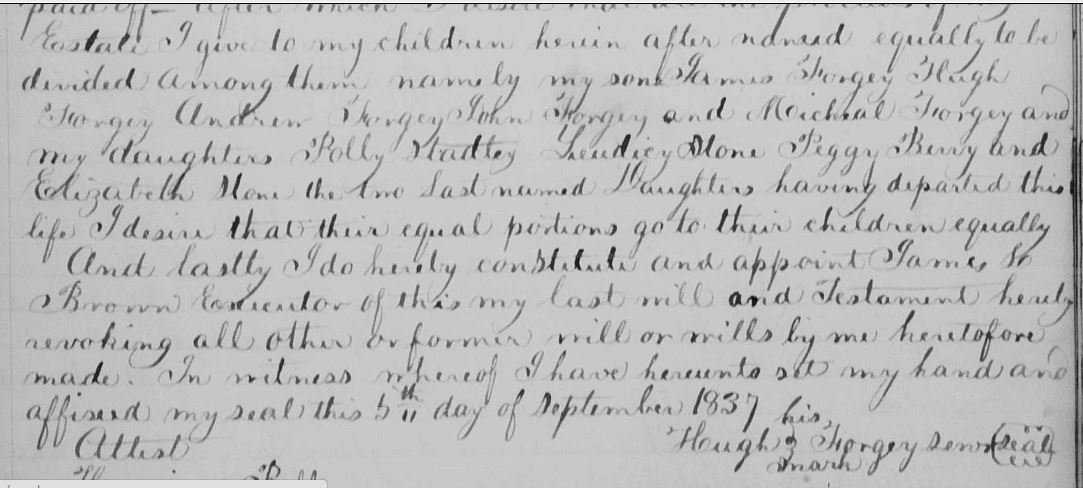 paid off – after which I desire that all the
Estate I give to my children herein after named equally to be
divided among them namely my sons James Forgey Hugh
Forgey Andrew Forgey John Forgey and Micheal Forgey and
my daughters Polly Stadley Stone Peggy Berry and
Elizabeth Stone the two Last named Daughters having departed this
life I desire that their equal portions go to their children equally
And lastly I do hereby constitute and appoint James
Brown Executor of this my last will and Testament hereby
revoking all other or former will or wills by me heretofore
made. In witness whereof I have hereunto set my hand and
affixed my seal this 5th day of September 1837
his
Attest Hugh Forgey senr (seal)
mark